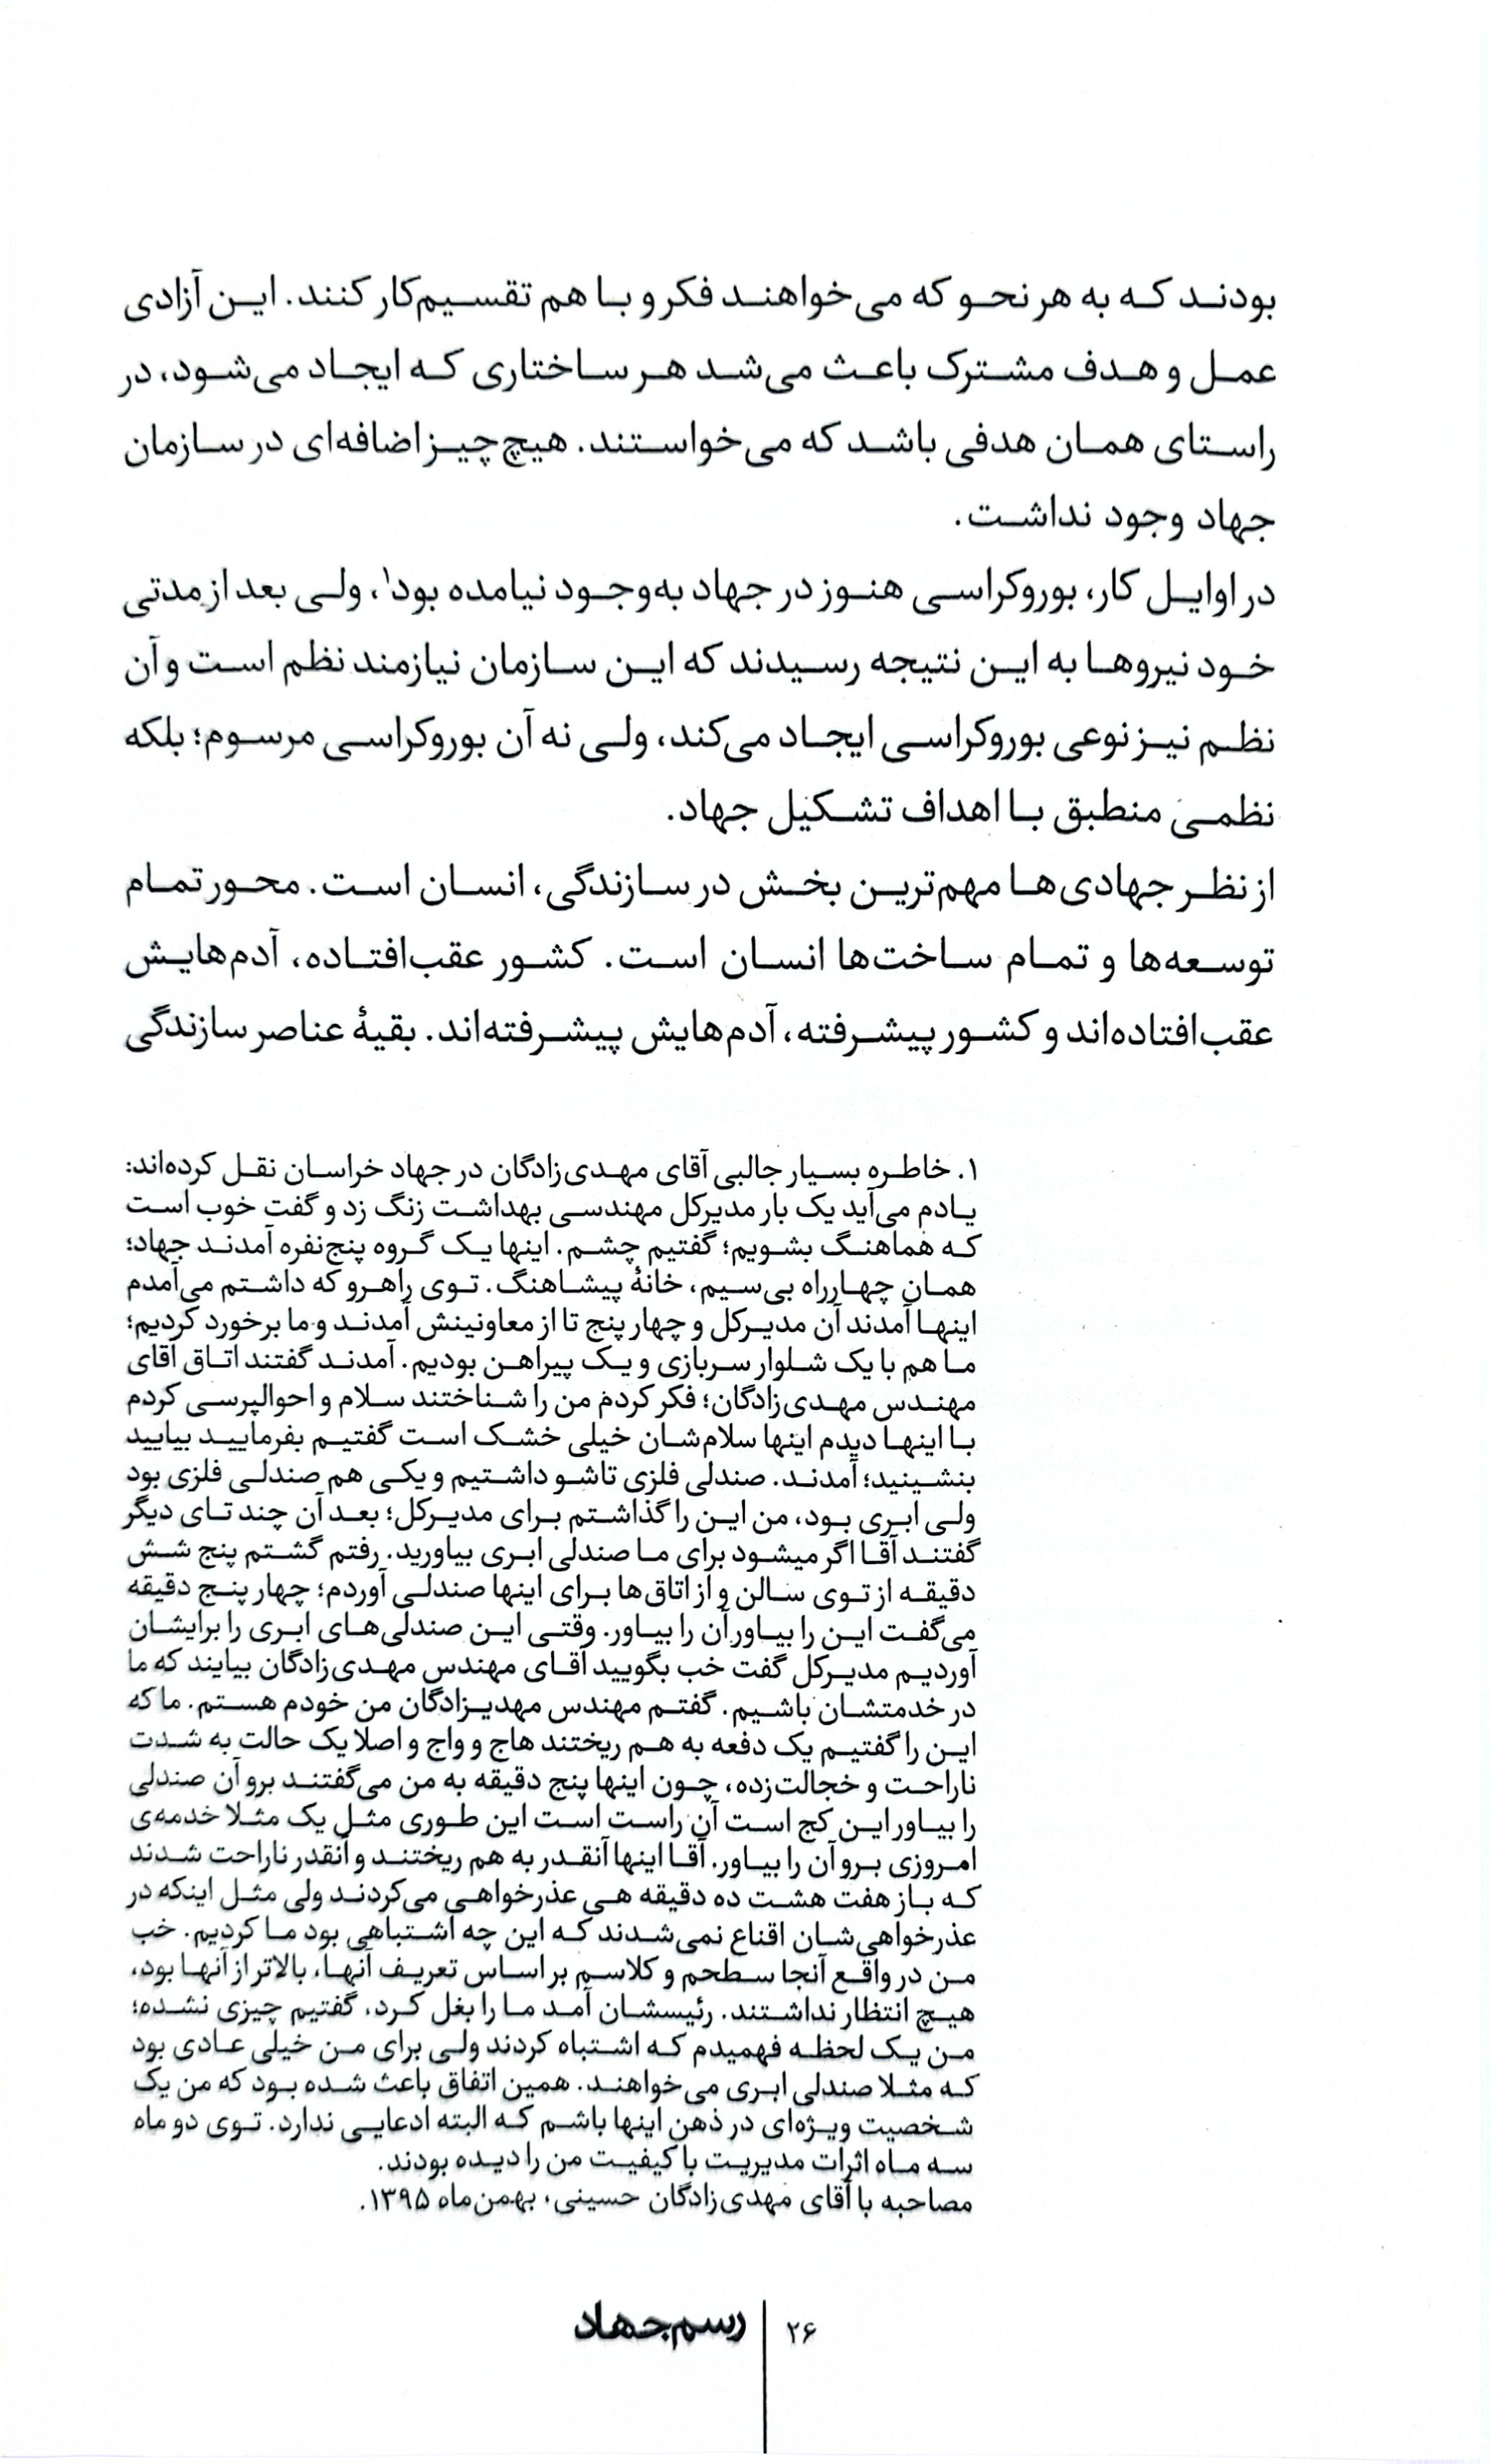 بودند که به هر نحو که می‌خواهند فکر و با هم تقسیم‌کار کنند. این آزادی
عمل و هدف مشترک باعث می‌شد هر ساختاری که ایجاد می‌شود، در
راستای همان هدفی باشد که می‌خواستند. هیچ چیز اضافه‌ای در سازمان
جهاد وجود نداشت.
در اوایل کار، بوروکراسی هنوز در جهاد به‌وجود نیامده بود۱، ولی بعد از مدتی
خود نیروها به این نتیجه رسیدند که این سازمان نیازمند نظم است و آن
نظم نیز نوعی بوروکراسی ایجاد می‌کند، ولی نه آن بوروکراسی مرسوم؛ بلکه
نظمی منطبق با اهداف تشکیل جهاد.
از نظر جهادی‌ها مهم‌ترین بخش در سازندگی، انسان است. محور تمام
توسعه‌ها و تمام ساخت‌ها انسان است. کشور عقب‌افتاده، آدم‌هایش
عقب‌افتاده‌اند و کشور پیشرفته، آدم‌هایش پیشرفته‌اند. بقیهٔ عناصر سازندگی
۱. خاطره بسیار جالبی آقای مهدی‌زادگان در جهاد خراسان نقل کرده‌اند:
یادم می‌آید یک بار مدیرکل مهندسی بهداشت زنگ زد و گفت خوب است
که هماهنگ بشویم؛ گفتیم چشم. اینها یک گروه پنج‌نفره آمدند جهاد؛
همان چهارراه بی‌سیم، خانهٔ پیشاهنگ. توی راهرو که داشتم می‌آمدم
اینها آمدند آن مدیرکل و چهار پنج تا از معاونینش آمدند و ما برخورد کردیم؛
ما هم با یک شلوار سربازی و یک پیراهن بودیم. آمدند گفتند اتاق آقای
مهندس مهدی‌زادگان؛ فکر کردم من را شناختند سلام و احوالپرسی کردم
با اینها دیدم اینها سلام‌شان خیلی خشک است گفتیم بفرمایید بیایید
بنشینید؛ آمدند. صندلی فلزی تاشو داشتیم و یکی هم صندلی فلزی بود
ولی ابری بود، من این را گذاشتم برای مدیرکل؛ بعد آن چند تای دیگر
گفتند آقا اگر میشود برای ما صندلی ابری بیاورید. رفتم گشتم پنج شش
دقیقه از توی سالن و از اتاق‌ها برای اینها صندلی آوردم؛ چهار پنج دقیقه
می‌گفت این را بیاور آن را بیاور. وقتی این صندلی‌های ابری را برایشان
آوردیم مدیرکل گفت خب بگویید آقای مهندس مهدی‌زادگان بیایند که ما
در خدمتشان باشیم. گفتم مهندس مهدیزادگان من خودم هستم. ما که
این را گفتیم یک دفعه به هم ریختند هاج و واج و اصلا یک حالت به شدت
ناراحت و خجالت‌زده، چون اینها پنج دقیقه به من می‌گفتند برو آن صندلی
را بیاور این کج است آن راست است این طوری مثل یک مثلا خدمه‌ی
امروزی برو آن را بیاور. آقا اینها آنقدر به هم ریختند و آنقدر ناراحت شدند
که باز هفت هشت ده دقیقه هی عذرخواهی می‌کردند ولی مثل اینکه در
عذرخواهی‌شان اقناع نمی‌شدند که این چه اشتباهی بود ما کردیم. خب
من در واقع آنجا سطحم و کلاسم بر اساس تعریف آنها، بالاتر از آنها بود،
هیچ انتظار نداشتند. رئیسشان آمد ما را بغل کرد، گفتیم چیزی نشده؛
من یک لحظه فهمیدم که اشتباه کردند ولی برای من خیلی عادی بود
که مثلا صندلی ابری می‌خواهند. همین اتفاق باعث شده بود که من یک
شخصیت ویژه‌ای در ذهن اینها باشم که البته ادعایی ندارد. توی دو ماه
سه ماه اثرات مدیریت با کیفیت من را دیده بودند.
مصاحبه با آقای مهدی‌زادگان حسینی، بهمن‌ماه ۱۳۹۵.
۲۶ | رسم جهاد